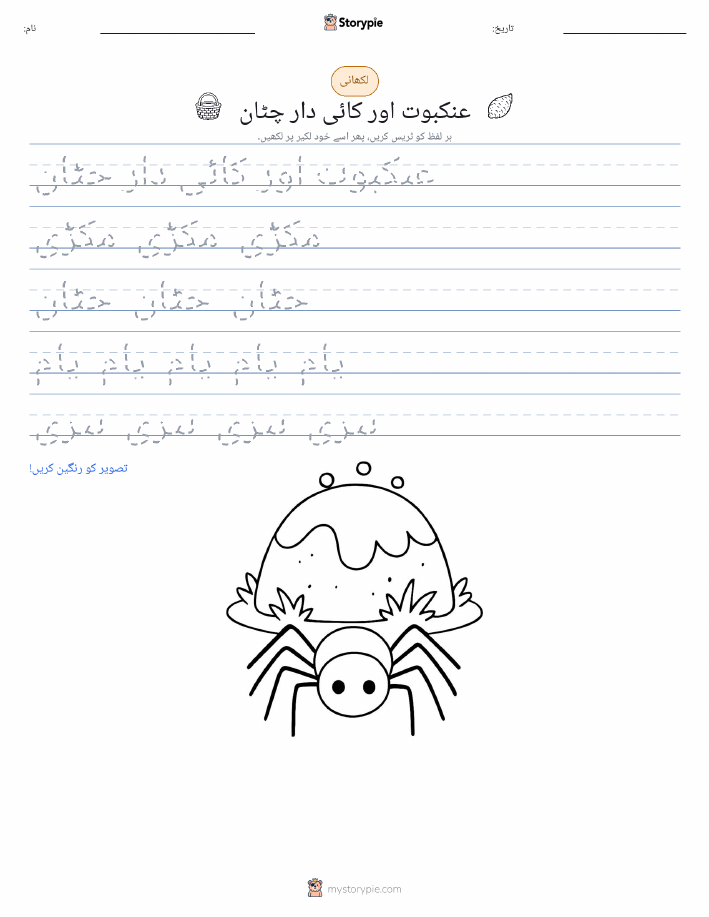 نام:
Storypie
تاریخ:
لکھائی
عنکبوت اور کائی دار چٹان
ہر لفظ کو ٹریس کریں، پھر اسے خود لکیر پر لکھیں۔
عنکبوت اور کائی دار چٹان
مکڑی مکڑی مکڑی
چٹان چٹان چٹان
یام یام یام یام یام
سبزی سبزی سبزی سبزی
تصویر کو رنگین کریں!
mystorypie.com